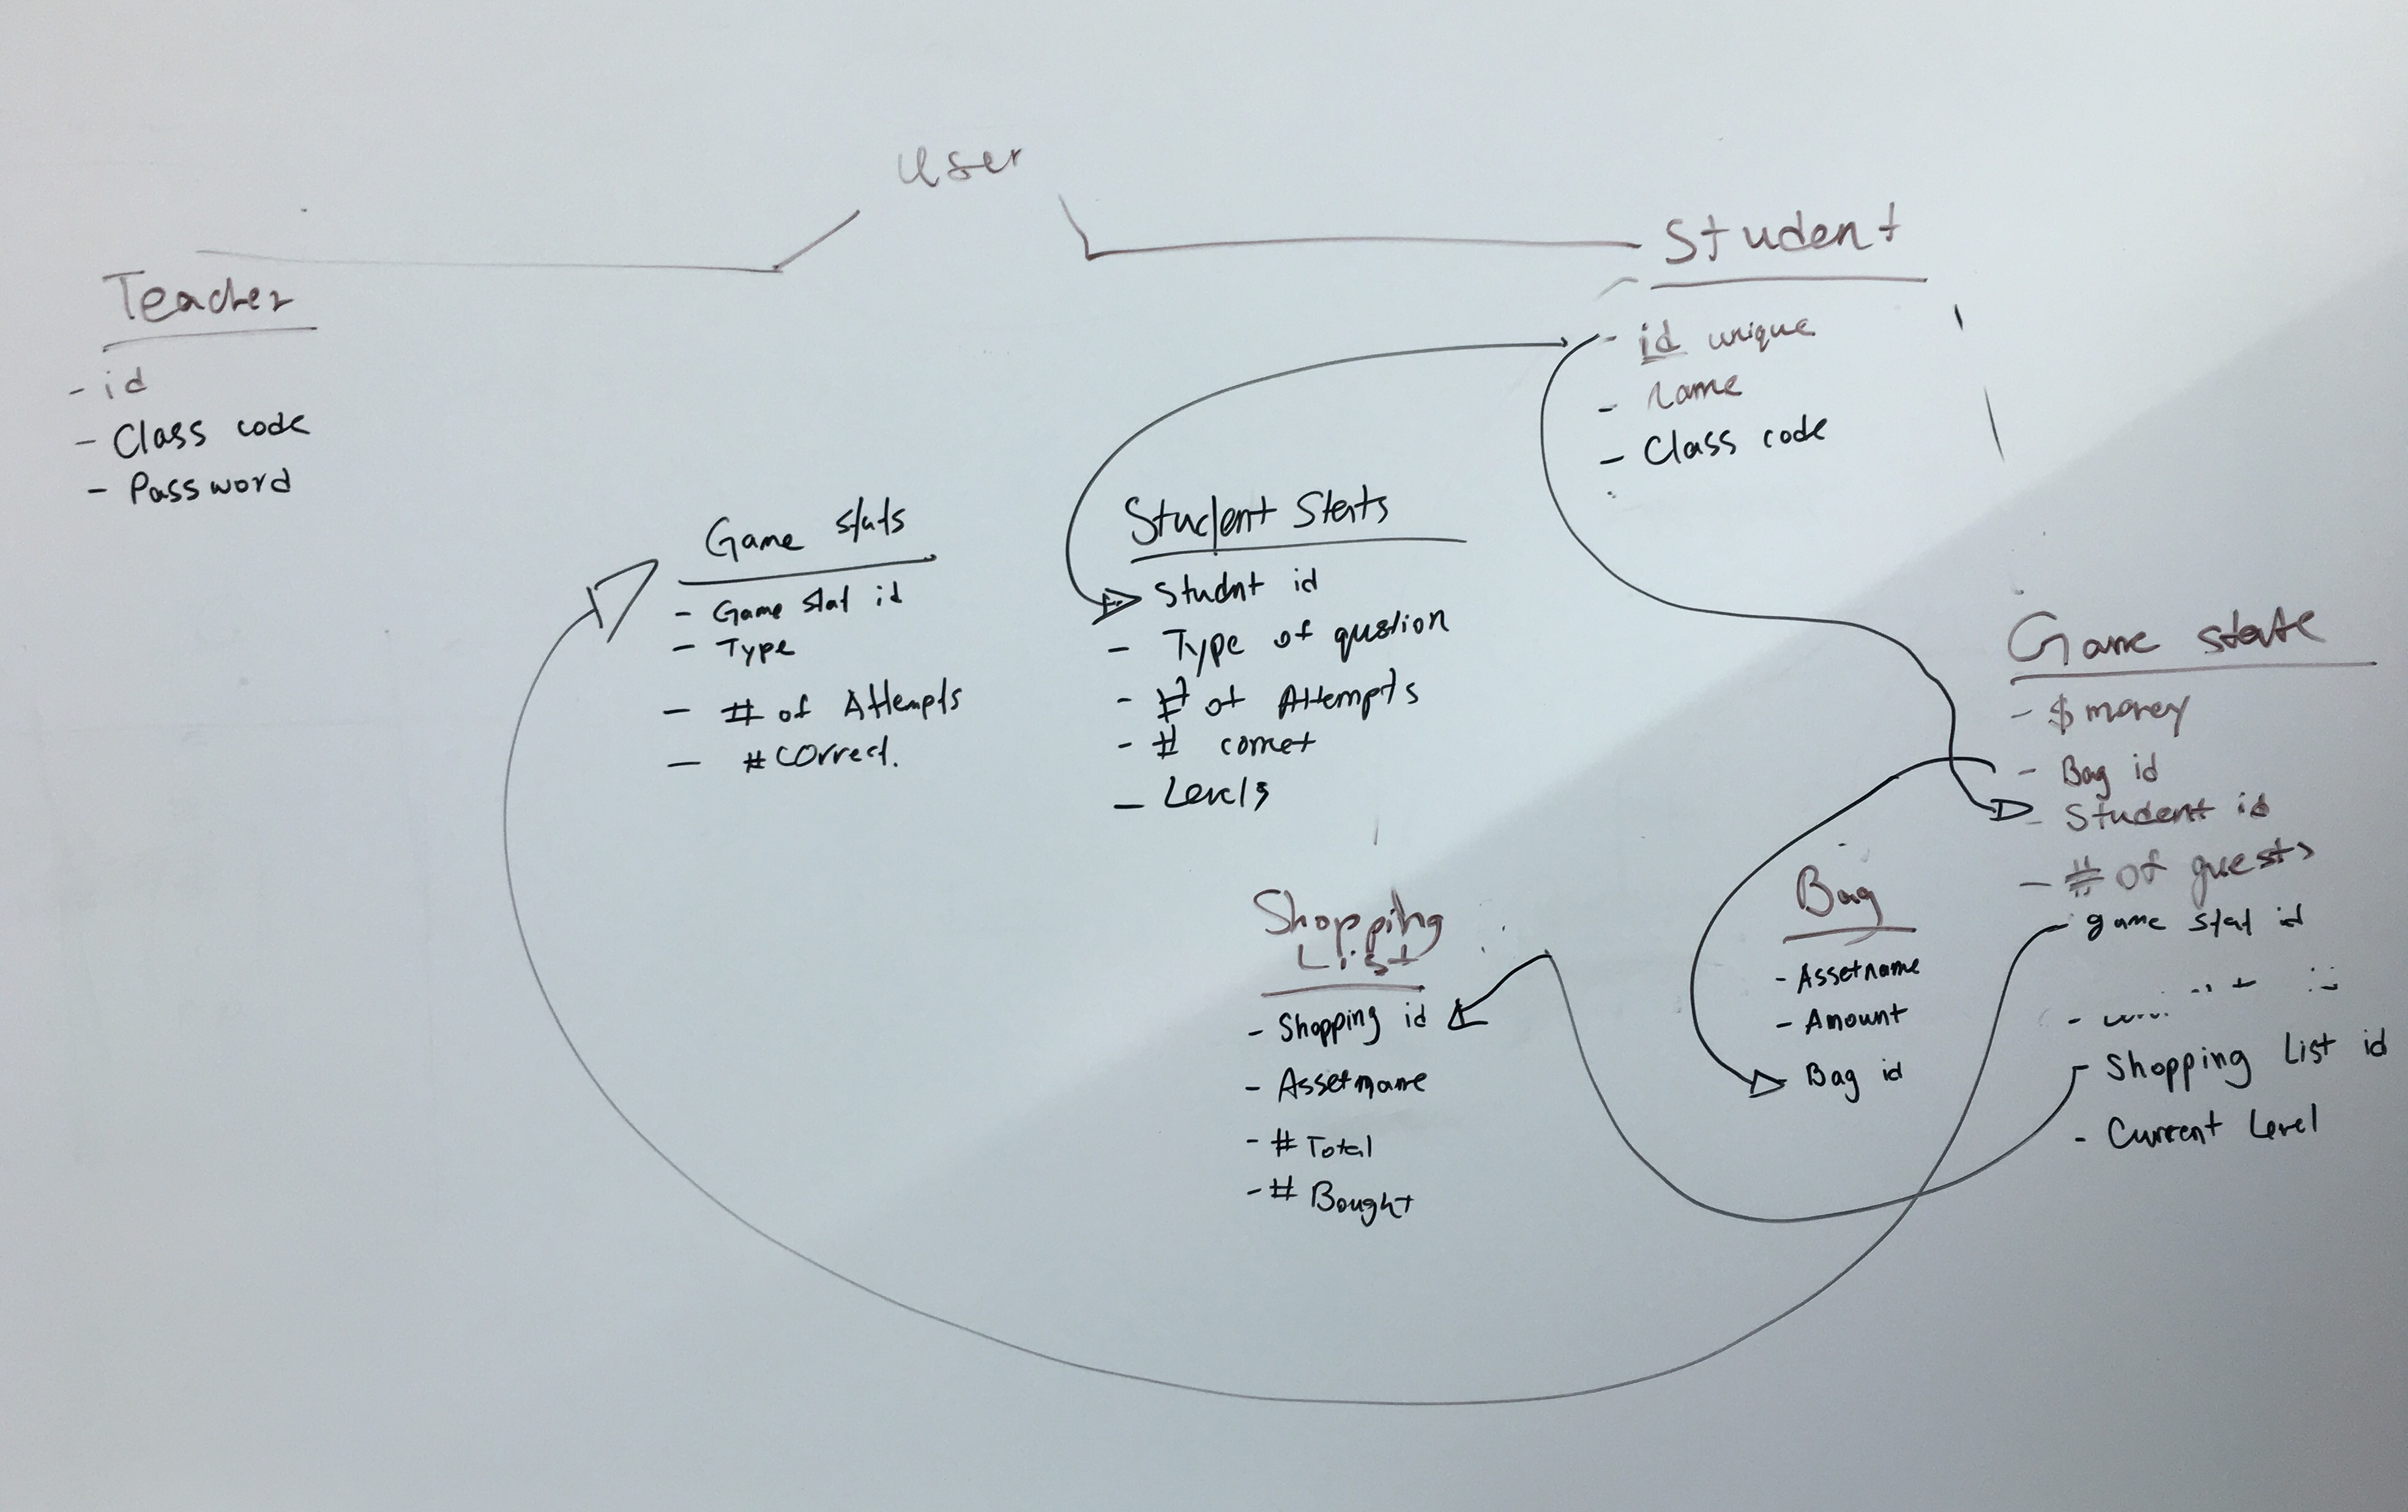 User
Teacher
- id
- Class code
- Password
Student
- id unique
- name
- Class code
Game stats
- Game stat id
- Type
- # of Attempts
- # Correct.
Student Stats
Studnt id
- Type of qustion
- # of Attempts
- # correct
- Levels
Game state
- $ money
- Bag id
- Student id
- # of guests
game stat id
- Shopping List id
- Current Level
Shopping
List
- Shopping id
- Assetname
- # Total
- # Bought
Bag
- Assetname
- Amount
Bag id